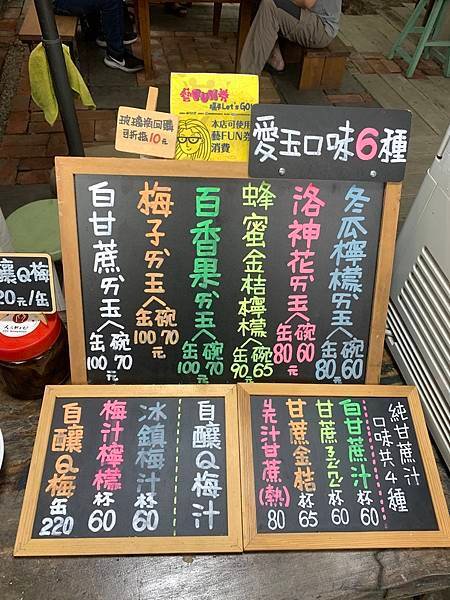 愛玉口味6種
本店可使用
藝FUN券
消費
Let's GO!
可折抵10元
冬瓜檸檬ㄞ玉 碗60 缶80元
洛神花ㄞ玉 碗60 缶80元
蜂蜜金桔檸檬 碗65 缶90元
百香果ㄞ玉 碗70 缶100元
梅子ㄞ玉 碗70 缶100元
白甘蔗ㄞ玉 碗70 缶100元
釀Q梅
20元/缶
自釀Q梅汁
冰鎮梅汁 杯60
梅汁檸檬 杯60
自釀Q梅 缶220
純甘蔗汁
口味共4種
白甘蔗汁 杯60
甘蔗ㄋㄟㄋㄟ 杯60
甘蔗金桔 杯65
羌汁甘蔗(熱) 80